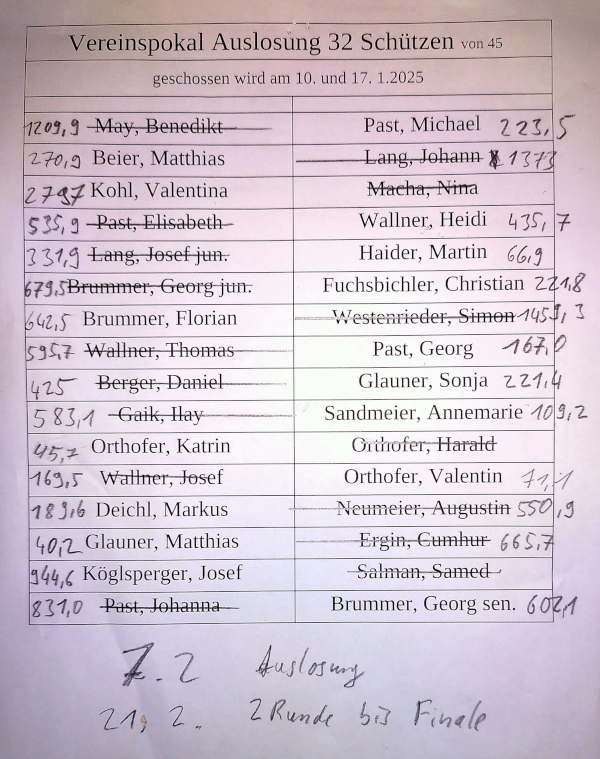 Vereinspokal Auslosung 32 Schützen von 45
geschossen wird am 10. und 17. 1.2025
1209,9 May, Benedikt Past, Michael 223,5
270,9 Beier, Matthias Lang, Johann 1373
279,7 Kohl, Valentina Macha, Nina
535,9 Past, Elisabeth Wallner, Heidi 435,7
331,9 Lang, Josef jun. Haider, Martin 66,9
679,5 Brummer, Georg jun. Fuchsbichler, Christian 221,8
642,5 Brummer, Florian Westenrieder, Simon 1459,3
595,7 Wallner, Thomas Past, Georg 167,0
425 Berger, Daniel Glauner, Sonja 221,4
583,1 Gaik, Ilay Sandmeier, Annemarie 109,2
45,7 Orthofer, Katrin Orthofer, Harald
169,5 Wallner, Josef Orthofer, Valentin 71,1
189,6 Deichl, Markus Neumeier, Augustin 550,9
40,2 Glauner, Matthias Ergin, Cumhur 665,7
944,6 Köglsperger, Josef Salman, Samed
831,0 Past, Johanna Brummer, Georg sen. 602,1
7.2 Auslosung
21, 2. 2 Runde bis Finale